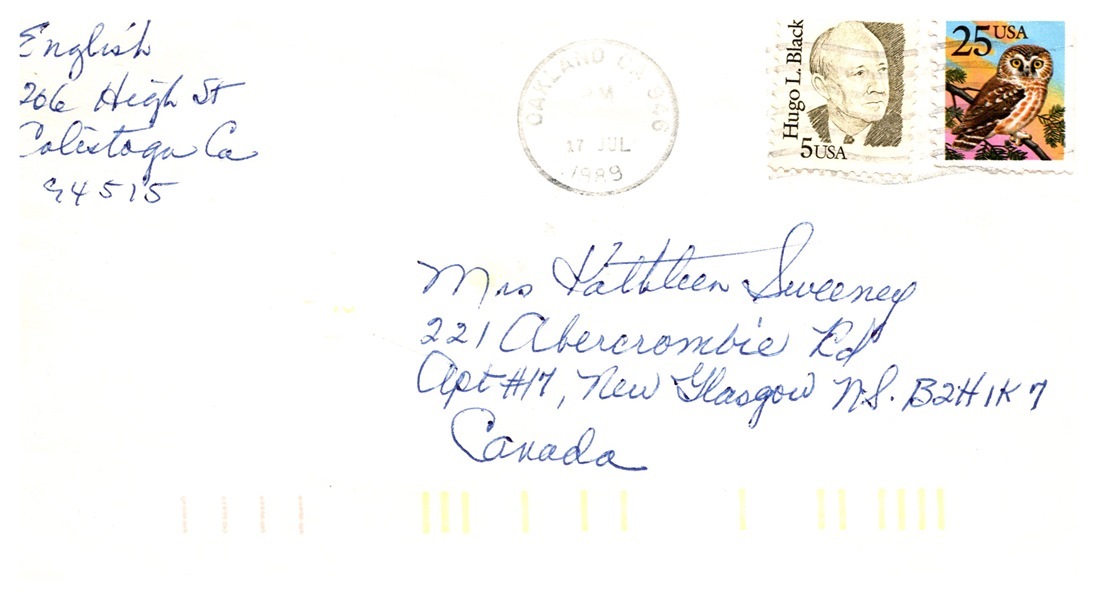 English
206 High St
Calistoga Ca
94515
OAKLAND CA 946
PM
17 JUL
1989
Hugo L. Black
5 USA
25 USA
Mrs Kathleen Sweeney
221 Abercrombie Rd
Apt #17, New Glasgow N.S. B2H1K7
Canada